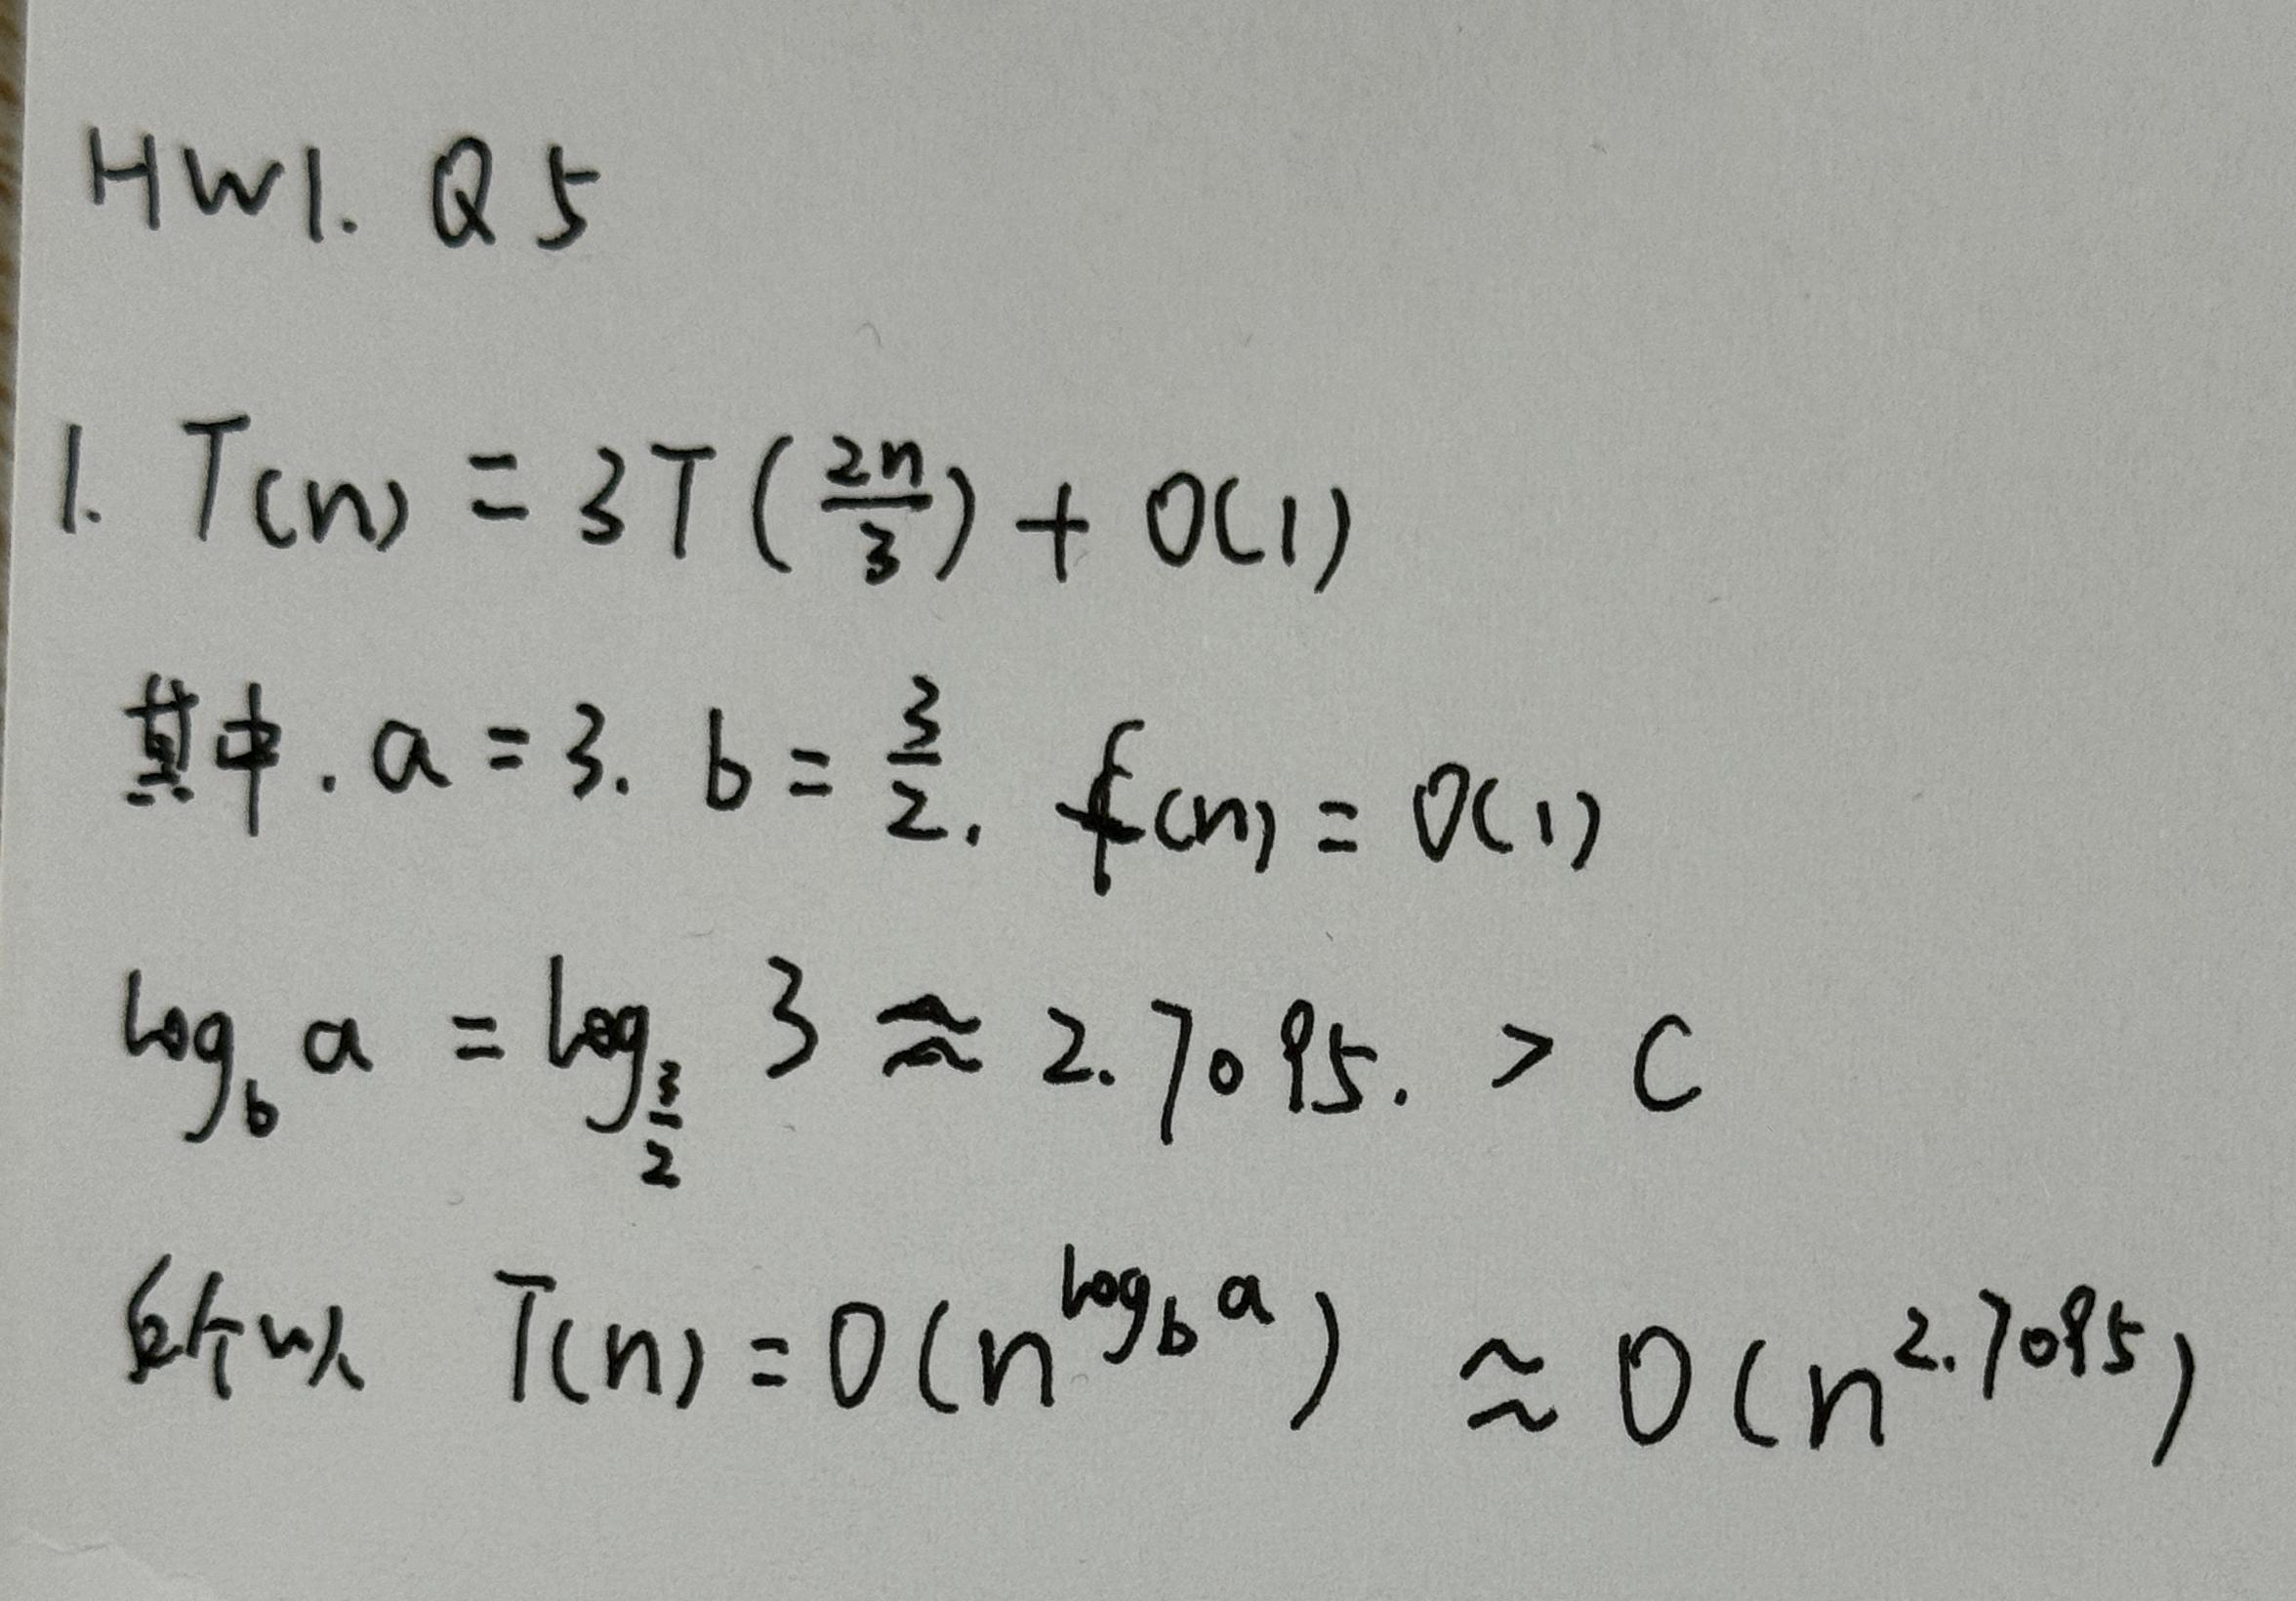 HW1. Q5
1. T(n) = 3T(2n/3) + O(1)
其中. a = 3. b = 3/2. f(n) = O(1)
log_b a = log_{3/2} 3 ≈ 2.7095. > C
所以 T(n) = O(n^{log_b a}) ≈ O(n^{2.7095})